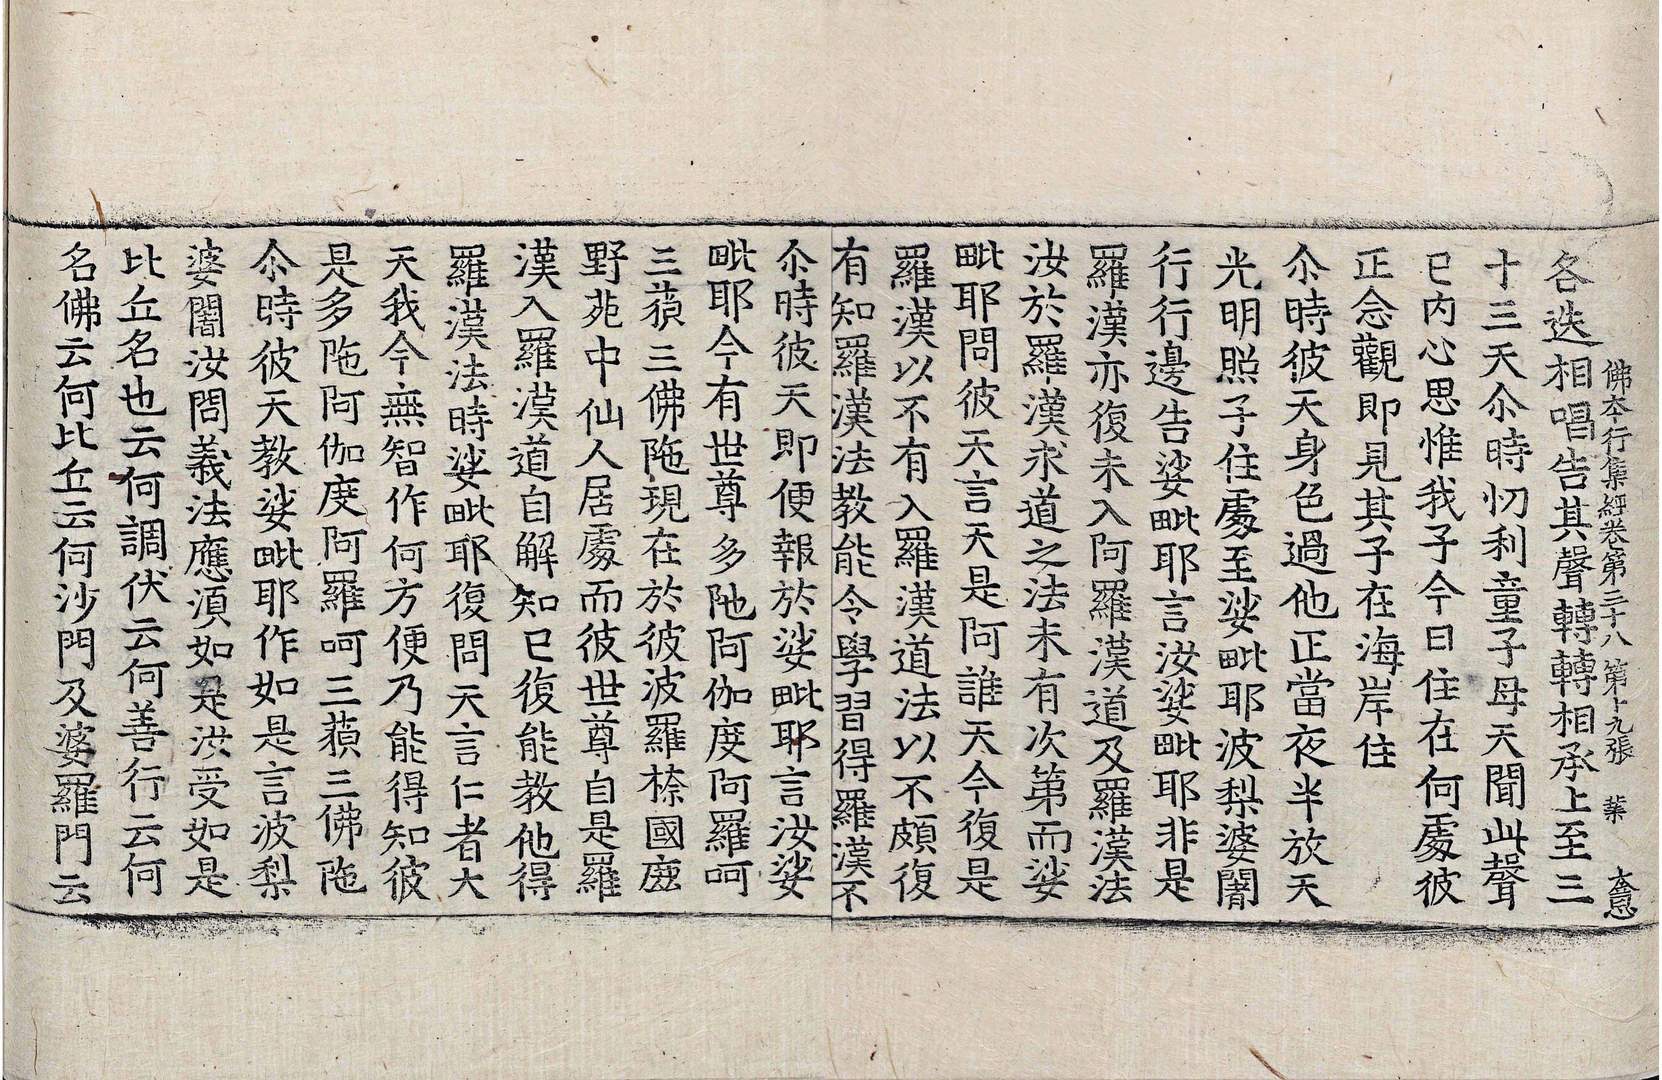 佛本行集經卷第三十八 第十九張 葉
各迭相唱告其聲轉轉相承上至三
十三天尒時忉利童子母天聞此聲
已內心思惟我子今日住在何處彼
正念觀即見其子在海岸住
尒時彼天身色過他正當夜半放天
光明照子住處至娑毗耶波梨婆闍
行行邊告娑毗耶言汝娑毗耶非是
羅漢亦復未入阿羅漢道及羅漢法
汝於羅漢求道之法未有次第而娑
毗耶問彼天言天是阿誰天今復是
羅漢以不有入羅漢道法以不頗復
有知羅漢法教能令學習得羅漢不
尒時彼天即便報於娑毗耶言汝娑
毗耶今有世尊多陁阿伽度阿羅呵
三藐三佛陁現在於彼波羅㮈國鹿
野苑中仙人居處而彼世尊自是羅
漢入羅漢道自解知已復能教他得
羅漢法時娑毗耶復問天言仁者大
天我今無智作何方便乃能得知彼
是多陁阿伽度阿羅呵三藐三佛陁
尒時彼天教娑毗耶作如是言波梨
婆闍汝問義法應湏如是汝受如是
比丘名也云何調伏云何善行云何
名佛云何比丘云何沙門及婆羅門云